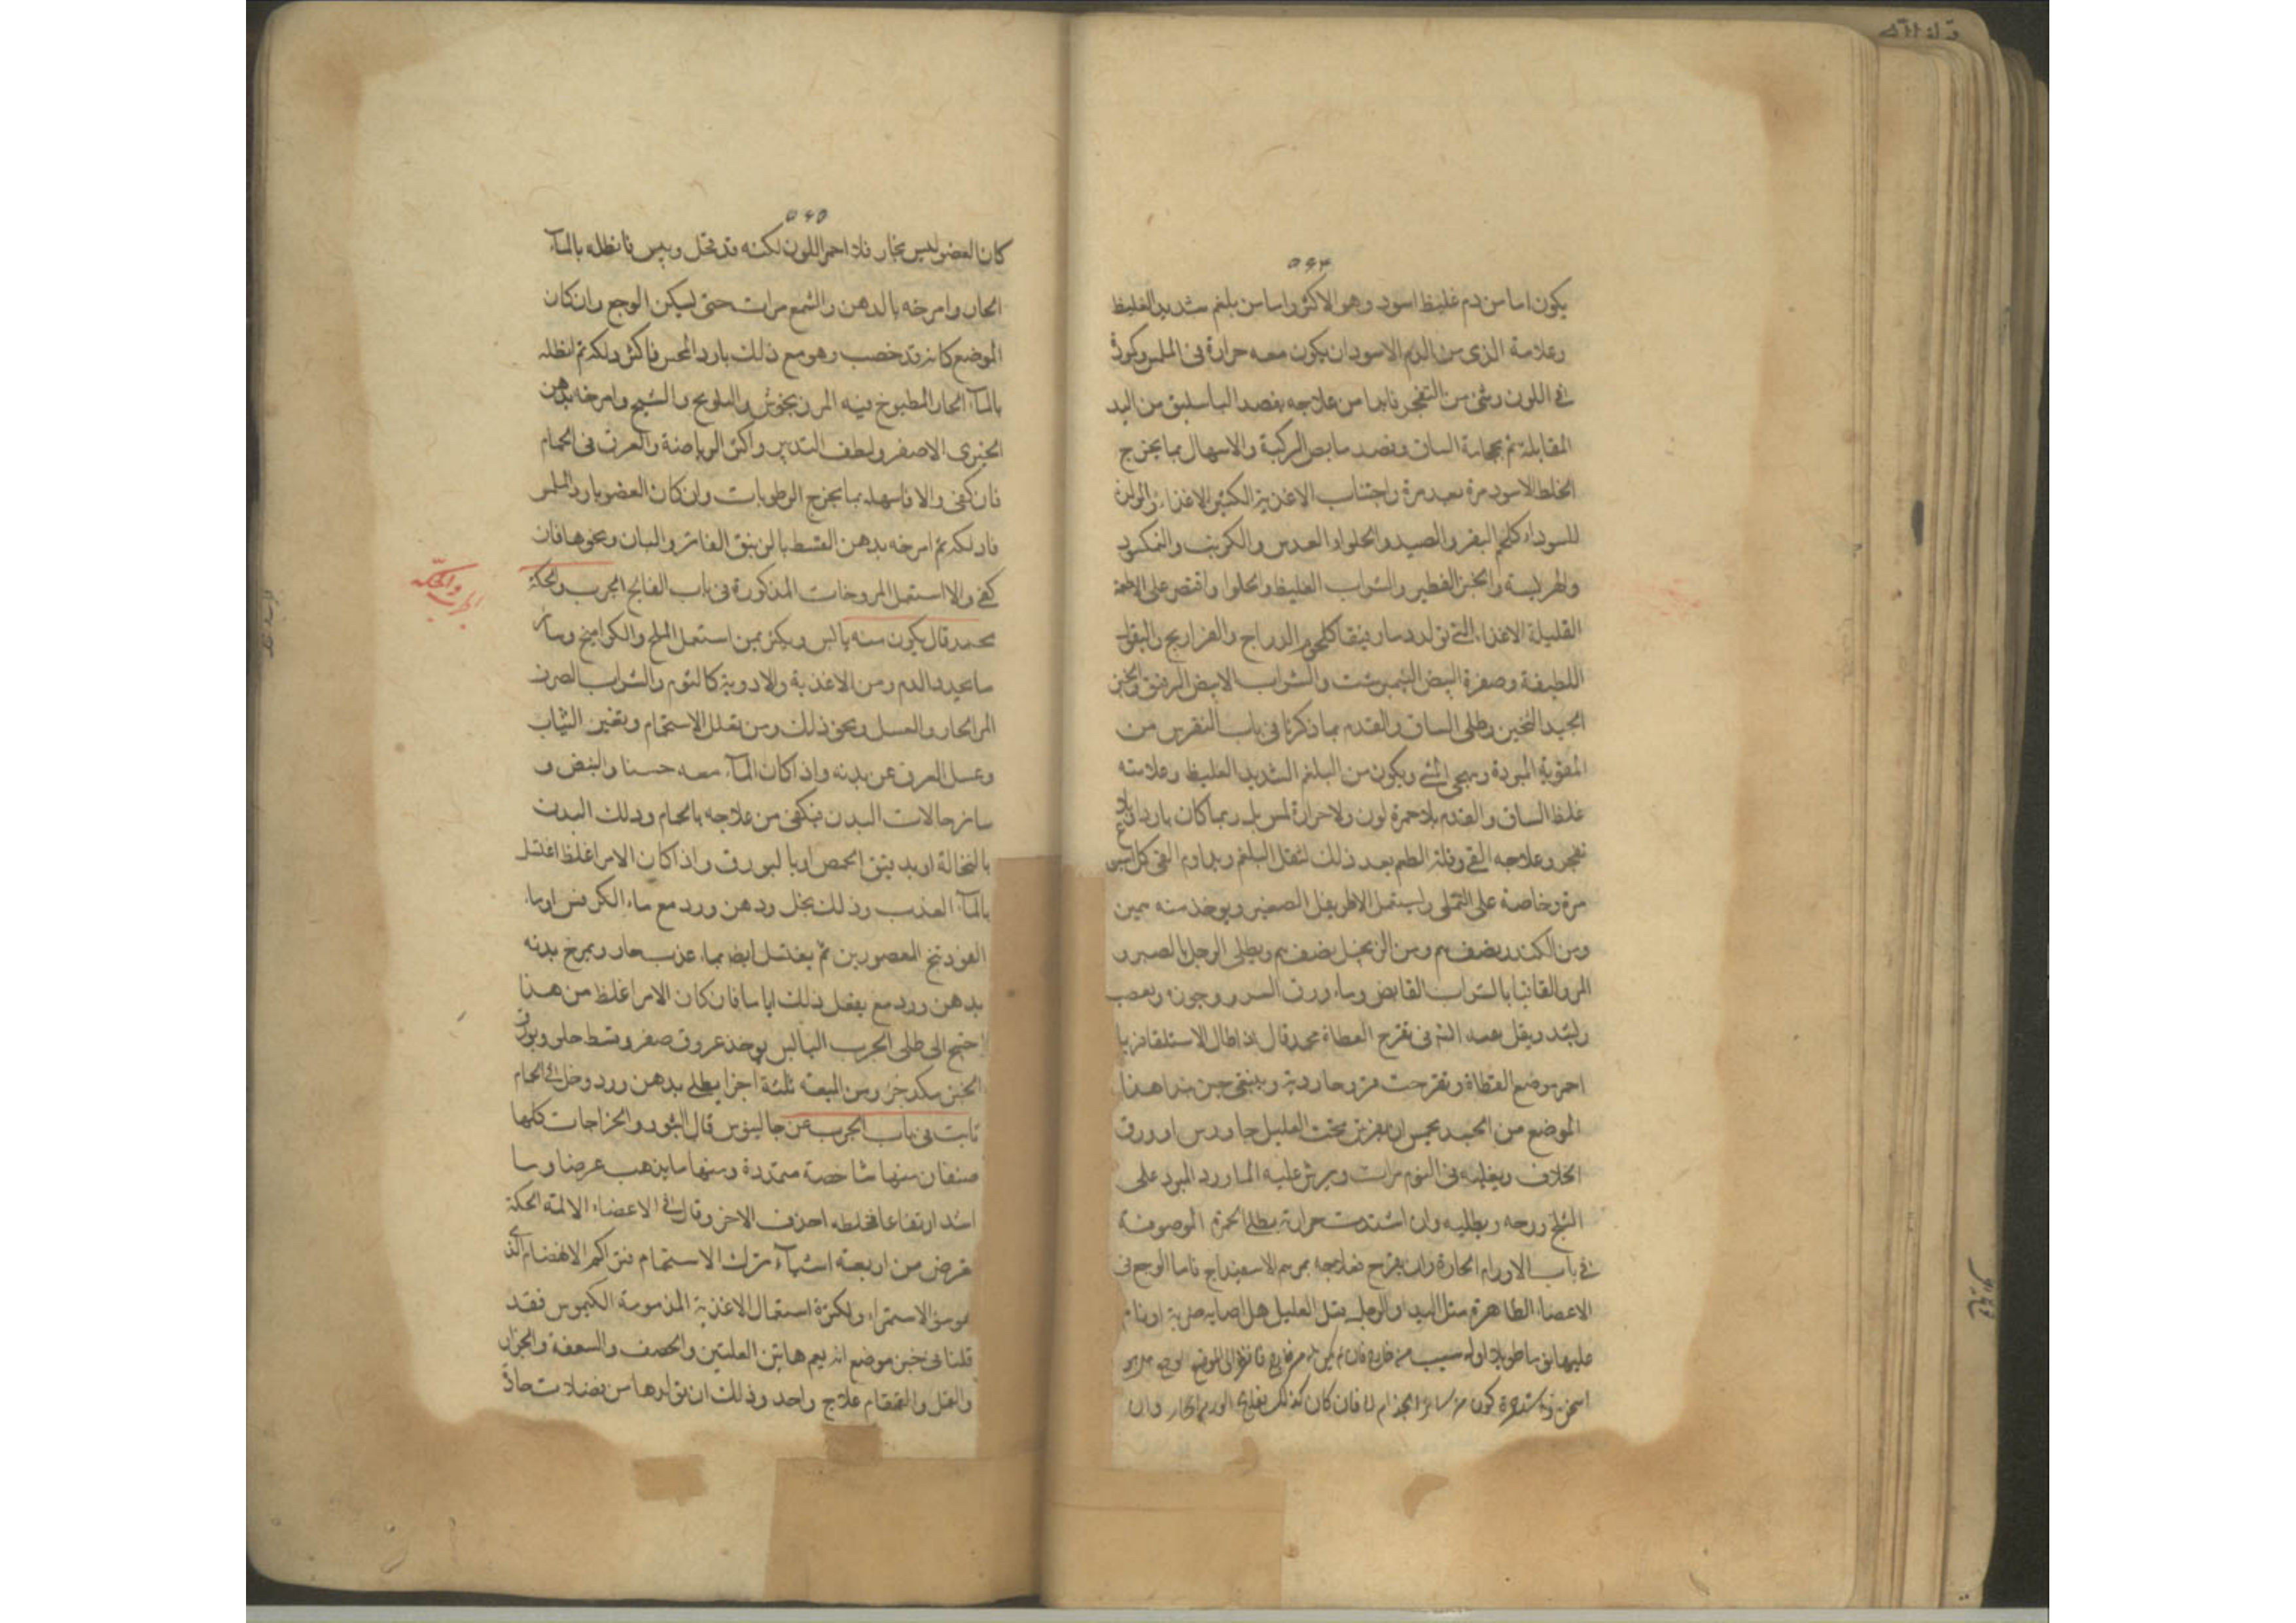 ۵۶۴
يكون اما من دم غليظ اسود وهو الاكثر واما من بلغم شديد الغليظ
وعلامة الذى من الدم الاسود ان يكون معه حرارة فى الملمس وكمودة
فى اللون وشئ من التفجر فابدا من علاجه بفصد الباسليق من اليد
المقابلة ثم بحجامة الساق وفصد مابض الركبة والاسهال بما يخرج
الخلط الاسود مرة بعد مرة واجتناب الاغذية الكثير الاغذاء والمولد
للسوداء كلحم البقر والصيد والحلواء والعدس والكرنب والنمكسود
والهريسة والخبز الفطير والشراب الغليظ والحلوا واقتصر على الاطعمة
القليلة الاغذاء التى تولد دما رقيقا كلحوم الدراج والفراريج والبقول
اللطيفة وصفرة البيض النيمبرشت والشراب الابيض الرقيق والخبز
الجيد التخين وطلى الساق والقدم بما ذكرنا فى باب النقرس من
المقوية المبردة وبهجر المشى ويكون من البلغم الشديد الغليظ وعلامته
غلظ الساق والقدم بلا حمرة لون ولا حرارة لمس بل ربما كان باردا
وعلاجه القئ وقلة الطعم بعد ذلك لتقل البلغم ويداوم القئ كل
مرة وخاصة على التملى وليستعمل الاطريفل الصغير ويوخذ منه
ومن الكندر نصف م ومن الزنجبيل نصف م ويطلى الرجل بالصبر و
المر والقاقيا بالشراب القابض وماء ورق السرو وجوزه ويعصب
ويشد ويقل تعبه فى تقرح القطاة محمد قال اذا طال الاستلقا فربما
احمر موضع القطاة وتقرحت قروحا ردية وينبغى حين بدا هذا
الموضع من الجسد يحس ان يفرش تحت العليل جاورس او ورق
الخلاف ويقلبه فى اليوم مرات ويرش عليه الماورد المبرد على
الثلج وحده ويطليه وان اشتدت حرارته بطلى الحمرة الموصوفة
فى باب الاورام الحارة وان تقرح فعلاجه بمرهم الاسفيداج فاما الوجع فى
الاعضاء الظاهرة مثل اليد والرجل بسل العليل هل اصابه ضربة او نام
عليها نوما طويلا او له سبب من خارج فان لم يكن من خارج فانظر الى الموضع
فان كان كذلك بعلاج الورم الحار وان
۵۶۵
كان العضو ليس بحار فلا احمر اللون لكنه قد قحل ويبس فانطله بالماء
الحار وامرخه بالدهن والشمع مرات حتى ليسكن الوجع وان كان
الموضع كانه قد خصب وهو مع ذلك بارد المجس فاكثر دلكه ثم انطله
بالماء الحار المطبوخ فيه المرزنجوش والبابونج والشيح وامرخه بدهن
الخيرى الاصفر ولطف التدبير واكثر الرياضة والعرق فى الحمام
فان كفى والا فاسهله بما يخرج الرطوبات وان كان العضو بارد الملمس
فادلكه ثم امرخه بدهن القسط بالزنبق الفاتر والبان ونحوها فان
كفى والا استعمل المروخات المذكورة فى باب الفالج الجرب والحكة
الجرب والحكة
محمد قال يكون منه يابس ويكثر بمن استعمل الملح والكواميخ وسائر
ما يحدد الدم ومن الاغذية والادوية كالثوم والشراب الصرف
المر الحار والعسل ونحو ذلك ومن تقلل الاستحمام وتغير الثياب
وغسل العرق عن بدنه واذا كان الماء معه حسنا والنبض و
سائر حالات البدن فيكفى من علاجه بالحمام ودلك البدن
بالنخالة او بدقيق الحمص او بالبورق واذا كان الامر اغلظ اغتسل
بالماء العذب وذلك بخل ودهن ورد مع ماء الكرفس او ماء
الفودنج المعصورين ثم يغتسل ايضا بماء عذب حار ويمرخ بدنه
بدهن ورد مع يفعل ذلك اياما فان كان الامر اغلظ من هذا
احتيج الى طلى الجرب اليابس يوخذ عروق صفر وقسط حلو وبورق
الخبز مكد جز ومن الميعة ثلثة اجزا يطلى بدهن ورد وخل فى الحمام
ثابت فى باب الجرب عن جالينوس قال البثور والخراجات كلها
صنفان منها شاخصة متمددة ومنها ما يذهب عرضا وما
اشد ارتفاعا فخلطه احذق الاخر وقال فى الاعضاء الالمة الحكة
تعرض من اربعة اشياء ترك الاستحمام فتراكم الانهضام الذى
هو سوء الاستمراء ولكثرة استعمال الاغذية المذمومة الكيموس فقد
قلنا فى غير موضع انه يعم هاتين العلتين والحصف والسعفة والحزاز
والقمل والقمقام علاج واحد وذلك ان تولدها من فضلات حادة